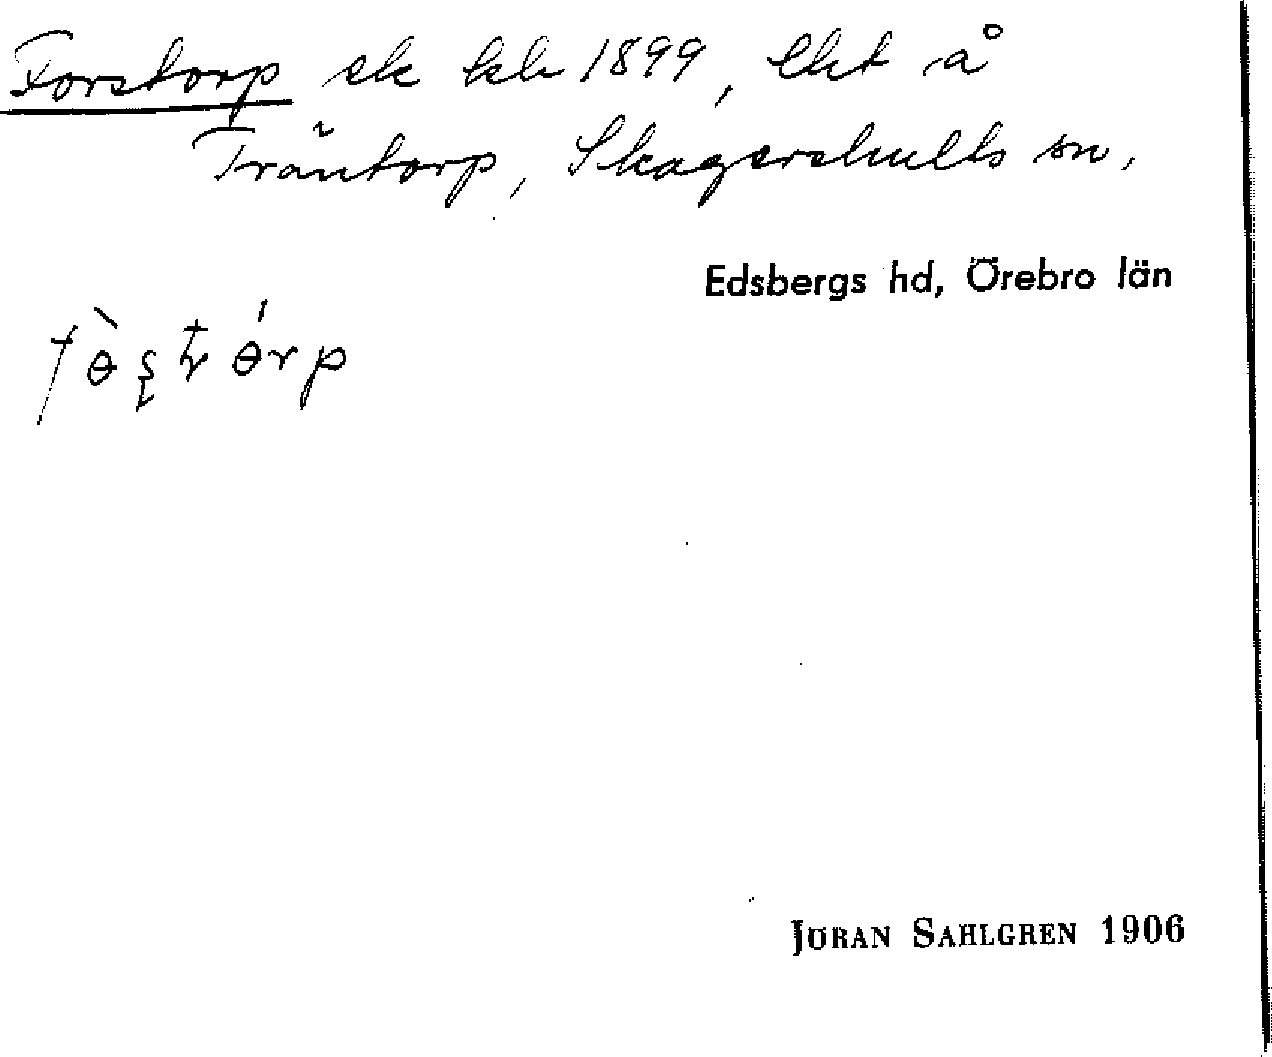 Forstorp ek kb 1899, lht å
Träntorp, Skagershults sn,
Edsbergs hd, Örebro län
JÖRAN SAHLGREN 1906